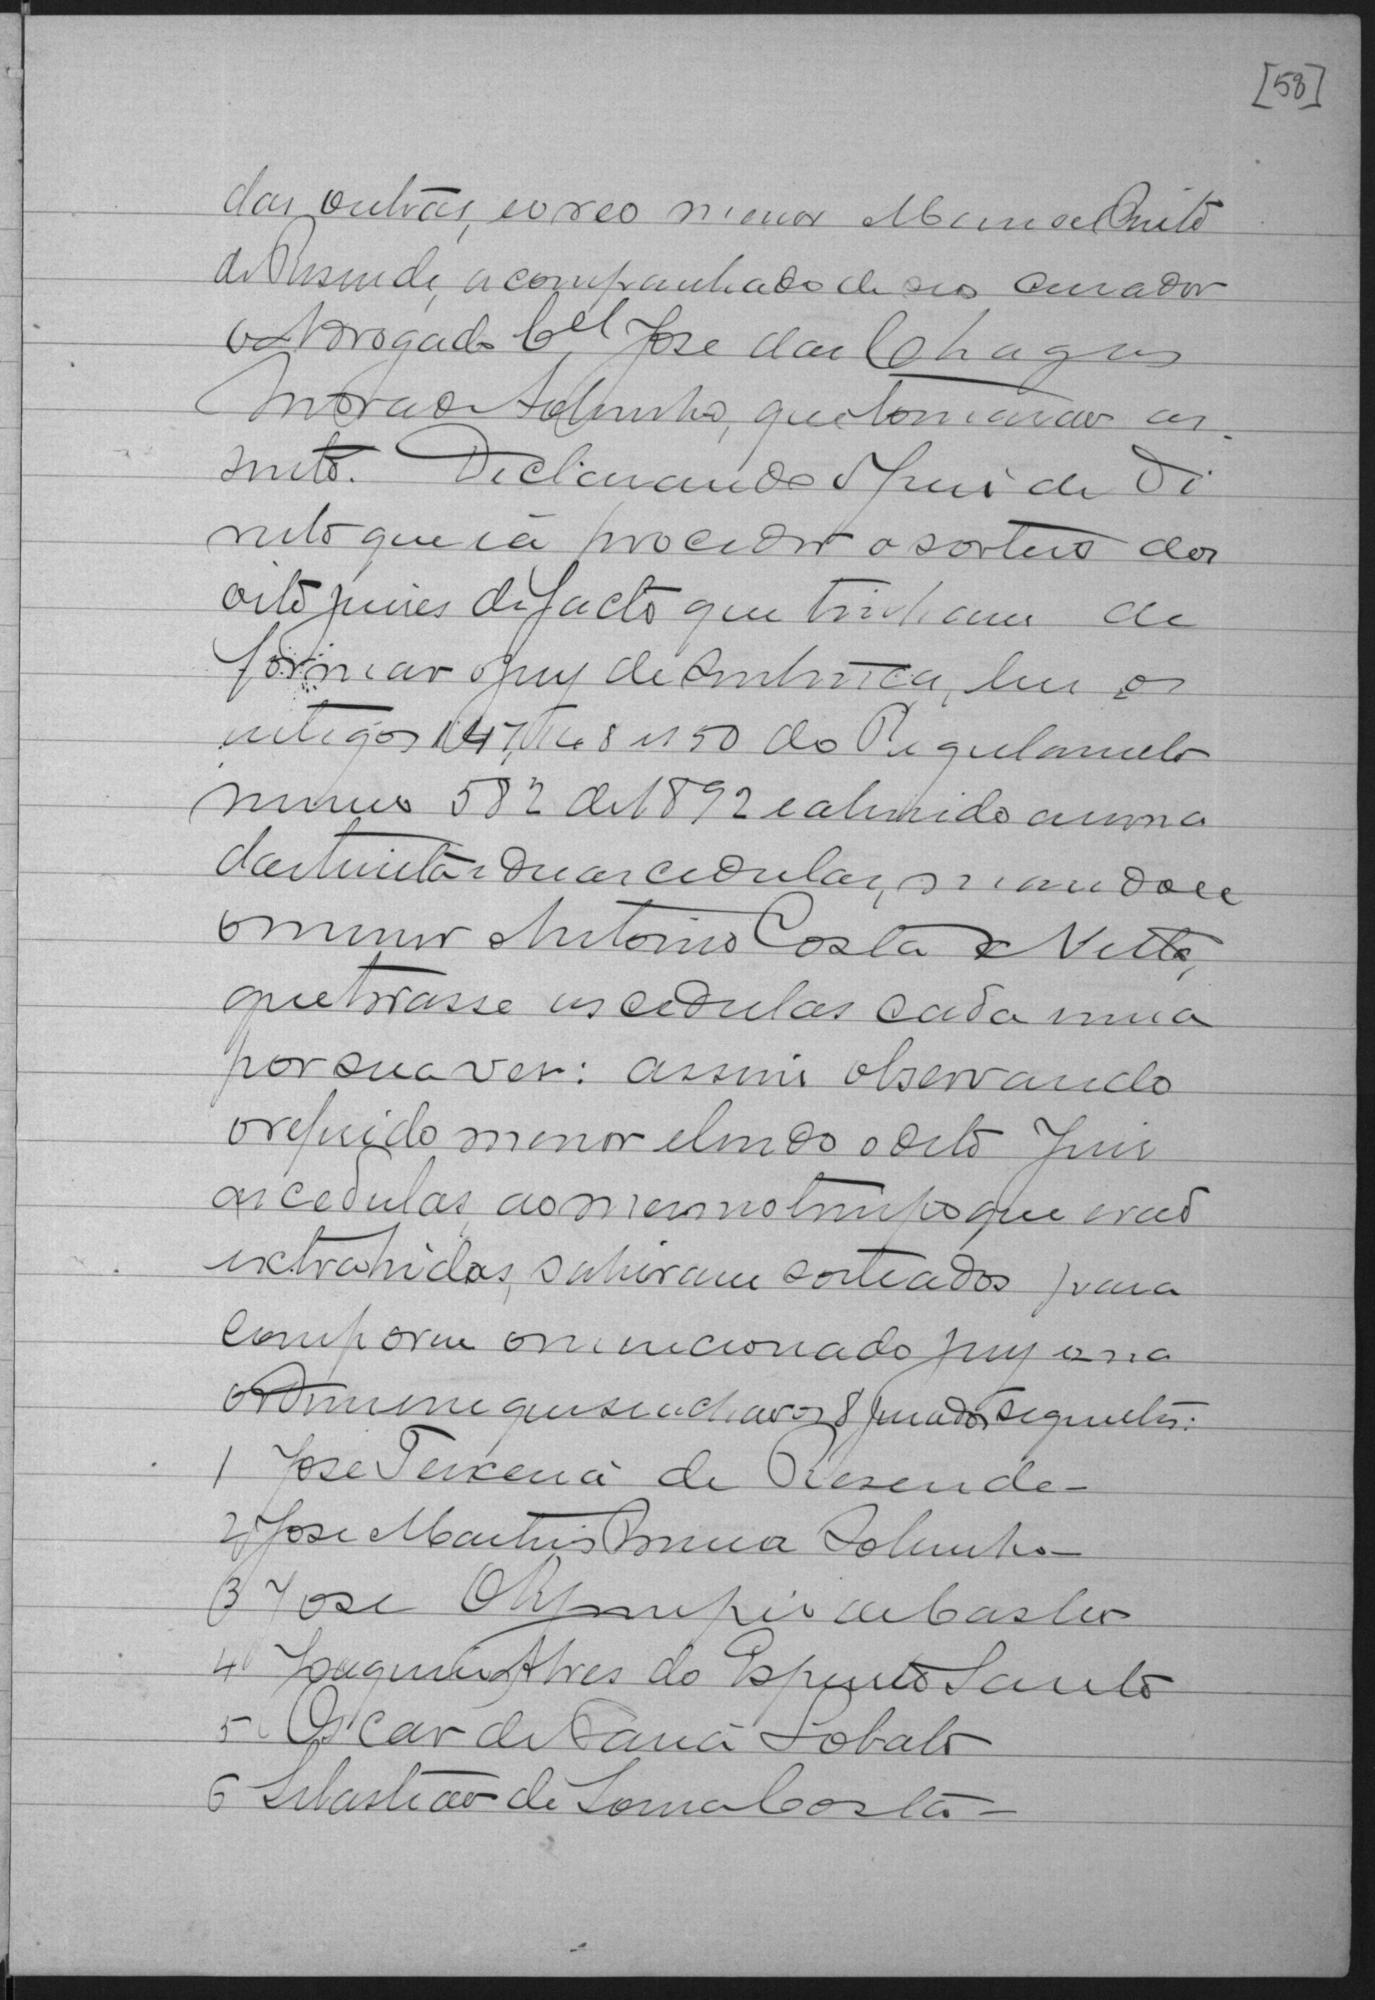 [58]
das outras, e o reo menor Manoel Brito
de Resende, acompanhado de seo curador
o Advogado Cel José das Chagas
Andrade Sobrinho, que tomarão as-
sento. Declarando o Juis de Di
reito que ia proceder o sorteio dos
oito juises de facto que tinham de
formar o jury de sentença, leu os
artigos 147, 148 e 150 do Regulamento
numero 582 de 1892 e abrindo a urna
das trinta e duas cedulas, mandou
o menor Antonio Costa Netto,
que tirasse as cedulas cada uma
por sua ves: assim observando
o referido menor e lendo o dito Juis
as cedulas, ao mesmo tempo que erão
extrahidas, sahiram sorteados para
comporem o mencionado jury e na
ordem em que se achão os 8 jurados seguintes:
1 José Teixeira de Resende-
2 José Martins Sobrinho-
3 José Olympio de Castro
4 Joaquim Alves do Espirito Santo
5 Oscar de Faria Lobato
6 Sebastião de Sousa Costa-